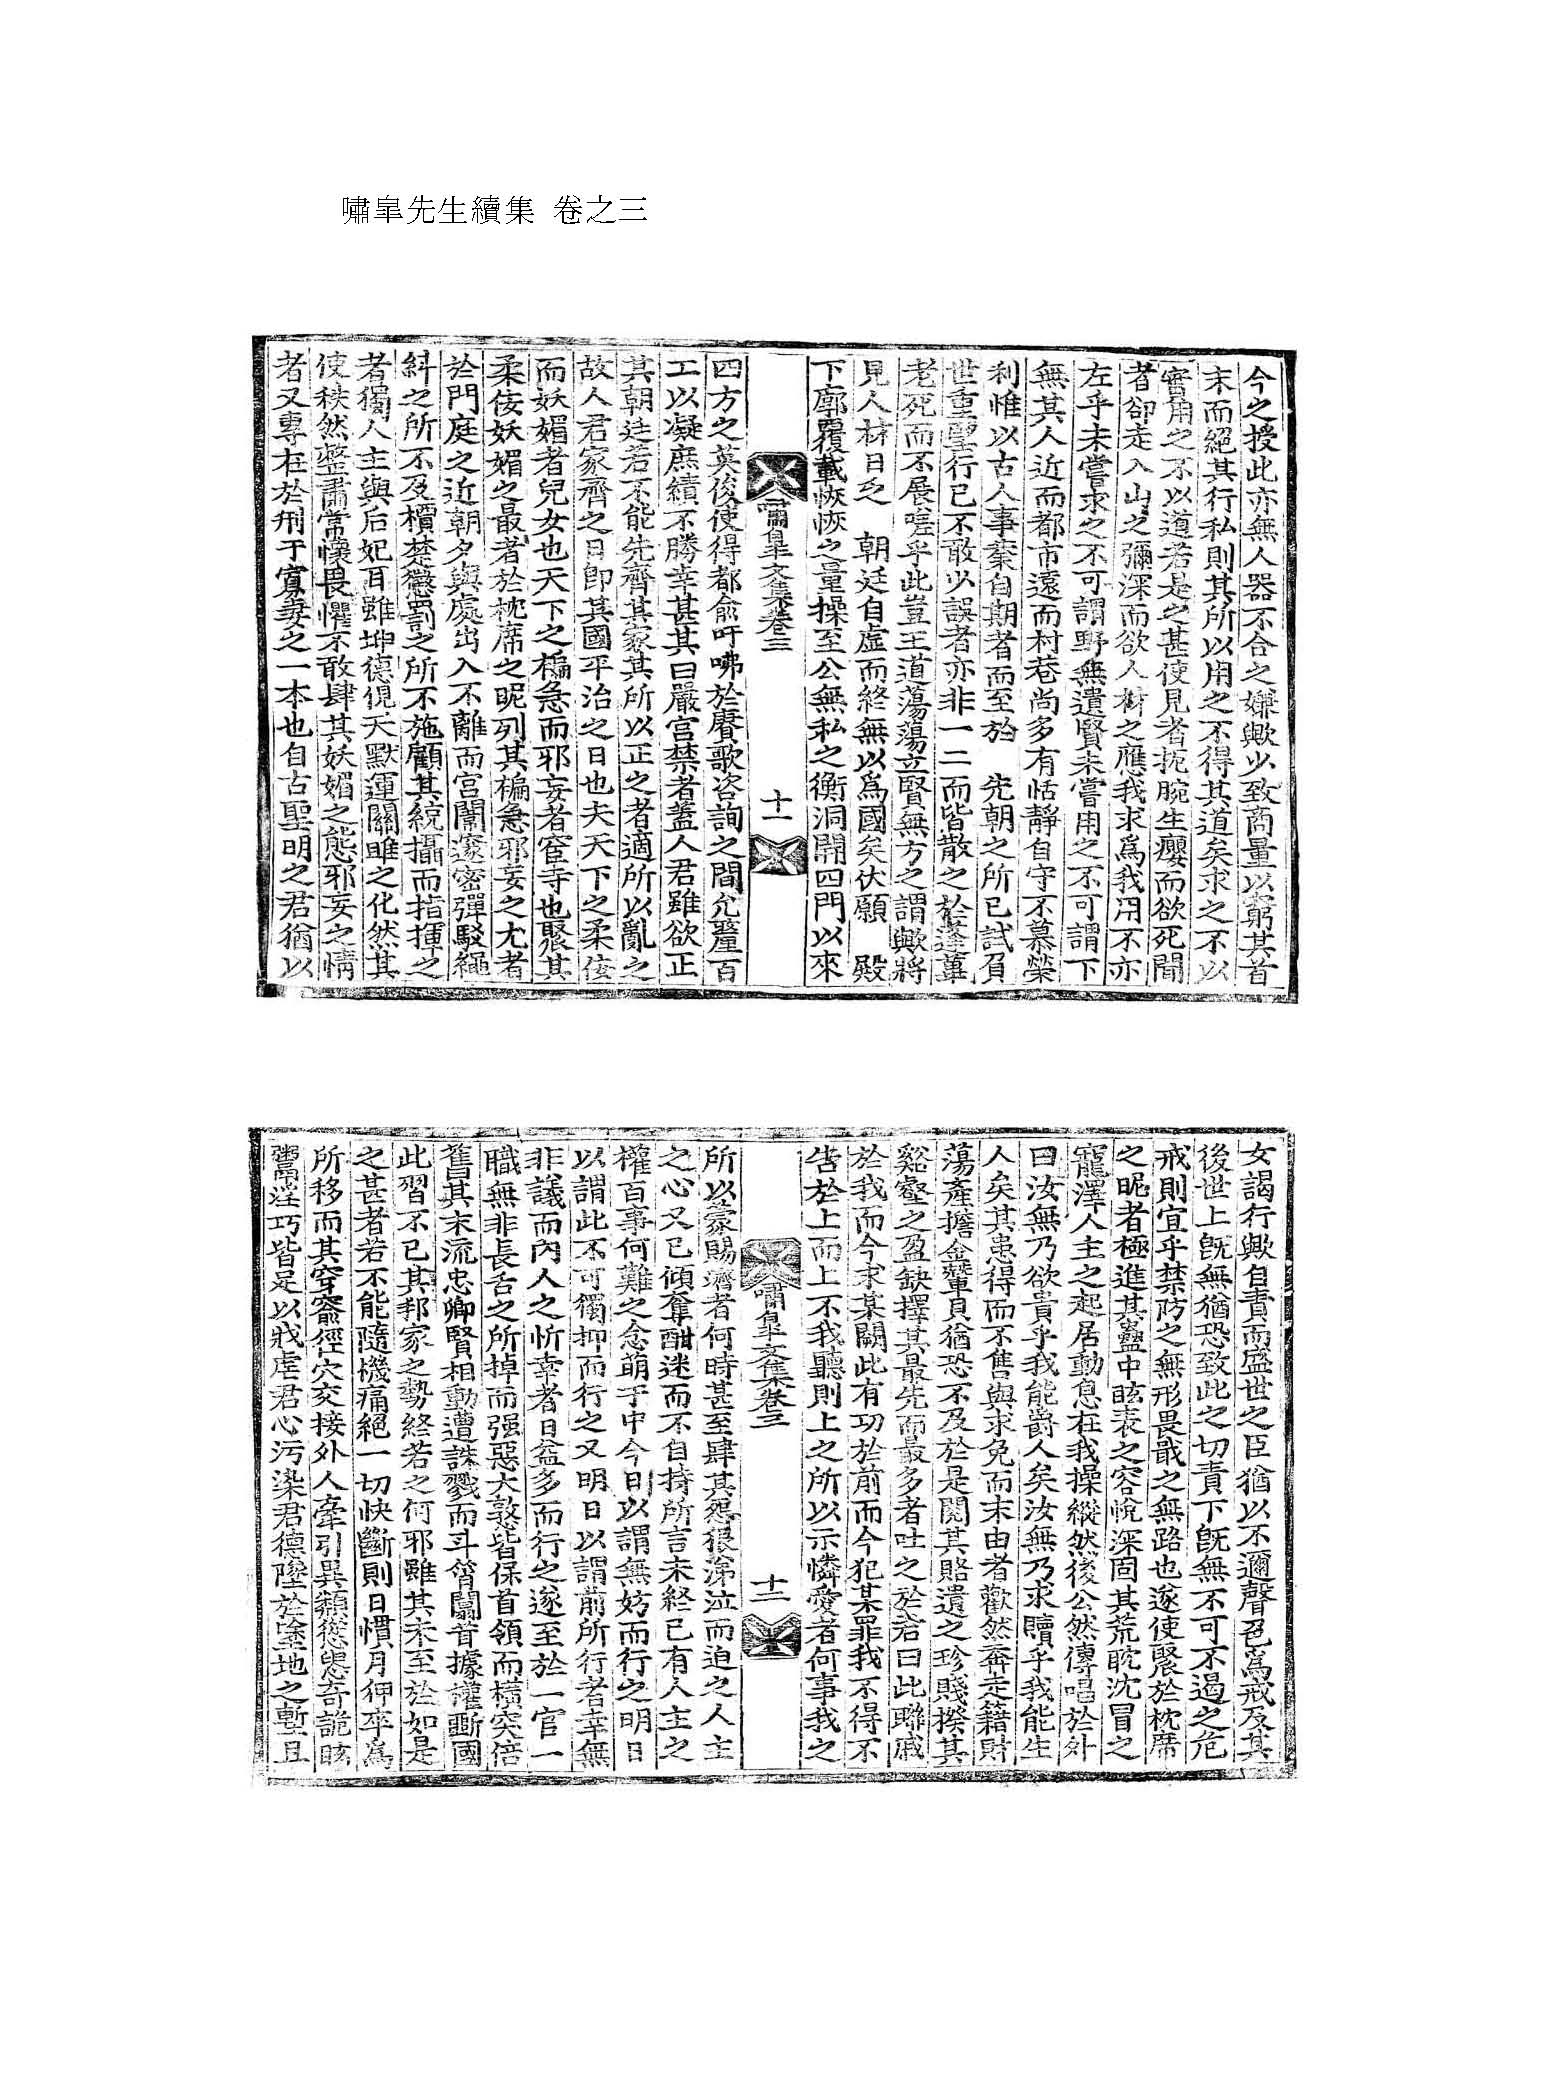 嘯皐先生續集 卷之三
今之授此亦無人器不合之嫌歟以致商量以窮其首
末而絕其行私則其所以用之不得其道矣求之不以
實用之不以道若是之甚使見者扼腕生癭而欲死聞
者卻走入山之彌深而欲人材之應我求爲我用不亦
左乎未嘗求之不可謂野無遺賢未嘗用之不可謂下
無其人近而都市遠而村巷尚多有恬靜自守不慕榮
利惟以古人事業自期者而至於 先朝之所已試負
世重望行己不敢以誤者亦非一二而皆散之於蓬蓽
老死而不展嗟乎此豈王道蕩蕩立賢無方之謂歟將
見人材日乏 朝廷自虛而終無以爲國矣伏願 殿
下廓覆載恢恢之量操至公無私之衡洞開四門以來
嘯皐文集卷三
十一
四方之英俊使得都兪吁咈於賡歌咨詢之間允釐百
工以凝庶績不勝幸甚其曰嚴宮禁者蓋人君雖欲正
其朝廷若不能先齊其家其所以正之者適所以亂之
故人君家齊之日卽其國平治之日也夫天下之柔佞
而妖媚者兒女也天下之褊急而邪妄者宦寺也聚其
柔佞妖媚之最者於枕席之昵列其褊急邪妄之尤者
於門庭之近朝夕與處出入不離而宮闈邃密彈駁繩
糾之所不及檟楚懲罰之所不施顧其統攝而指揮之
者獨人主與后妃耳雖坤德俔天默運關雎之化然其
使秩然整肅常懷畏懼不敢肆其妖媚之態邪妄之情
者又專在於刑于寡妻之一本也自古聖明之君猶以
女謁行歟自責而盛世之臣猶以不邇聲色爲戒及其
後世上旣無猶恐致此之切責下旣無不可不遏之危
戒則宜乎禁防之無形畏戢之無路也遂使褻於枕席
之昵者極進其蠱中眩表之容悅深固其荒耽沈冒之
寵澤人主之起居動息在我操縱然後公然傳唱於外
曰汝無乃欲貴乎我能爵人矣汝無乃求贖乎我能生
人矣其患得而不售與求免而末由者歡然奔走籍財
蕩產擔金輦貝猶恐不及於是閱其賂遺之珍賤揆其
谿壑之盈缺擇其最先而最多者吐之於名曰此聯戚
於我而今求某闕此有功於前而今犯某罪我不得不
告於上而上不我聽則上之所以示憐愛者何事我之
嘯皐文集卷三
十二
所以蒙賜濟者何時甚至肆其怨狠涕泣而迫之人主
之心又已傾奪酣迷而不自持所言未終已有人主之
權百事何難之念萌于中今日以謂無妨而行之明日
以謂此不可獨抑而行之又明日以謂前所行者幸無
非議而內人之忻幸者日益多而行之遂至於一官一
職無非長舌之所掉而强惡大憝皆保首領而橫突倍
舊其末流忠卿賢相動遭誅戮而斗筲闒茸據權斷國
此習不已其邦家之勢終若之何邪雖其未至於如是
之甚者若不能隨機痛絕一切快斷則日慣月狎卒爲
所移而其穿窬徑穴交接外人牽引異類慫慂奇詭眩
鬻淫巧皆足以戕虐君心污染君德墜於塗地之塹且